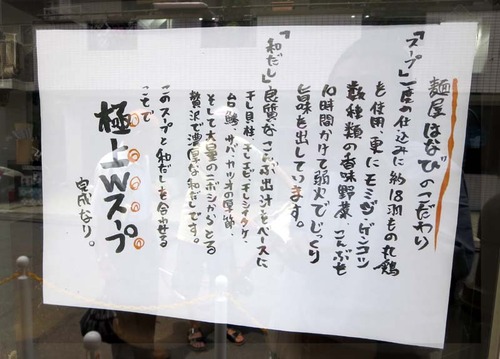 麺屋はなびのこだわり
「スープ」一度の仕込みに約18羽もの丸鶏
を使用、更にモミジ・ゲンコツ
数種類の香味野菜、こんぶを
10時間かけて弱火でじっくり
旨味を出してってます。
「和だし」良質なこんぶ出汁をベースに
干し貝柱、干しエビ、干しシイタケ、
白鯵、サバ、カツオの厚節
そして大量のニボシからとる
贅沢で濃厚な和だしです。
このスープと和だしを合わせる
ことで
極上Wスープ
完成なり。